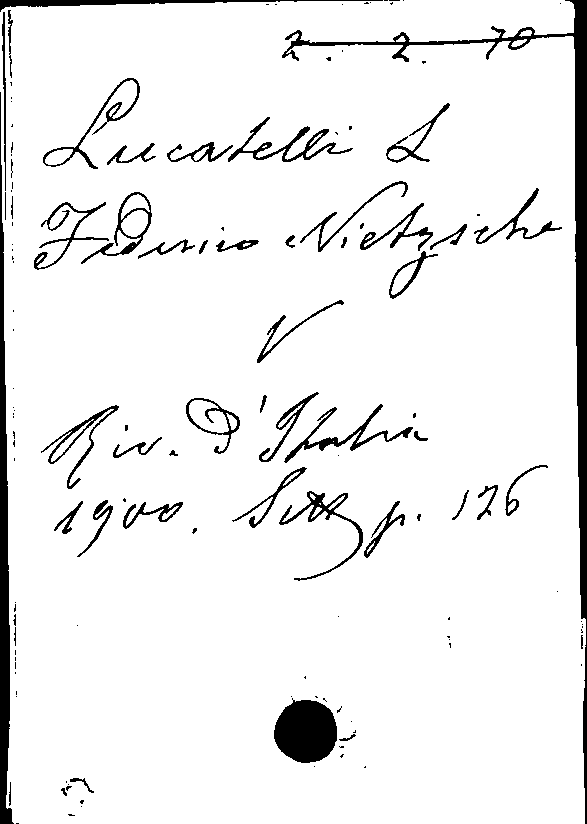 2. 2. 70
Lucatelli L
Federico Nietzsche
V
Riv. d'Italia
1900. Sett p. 126